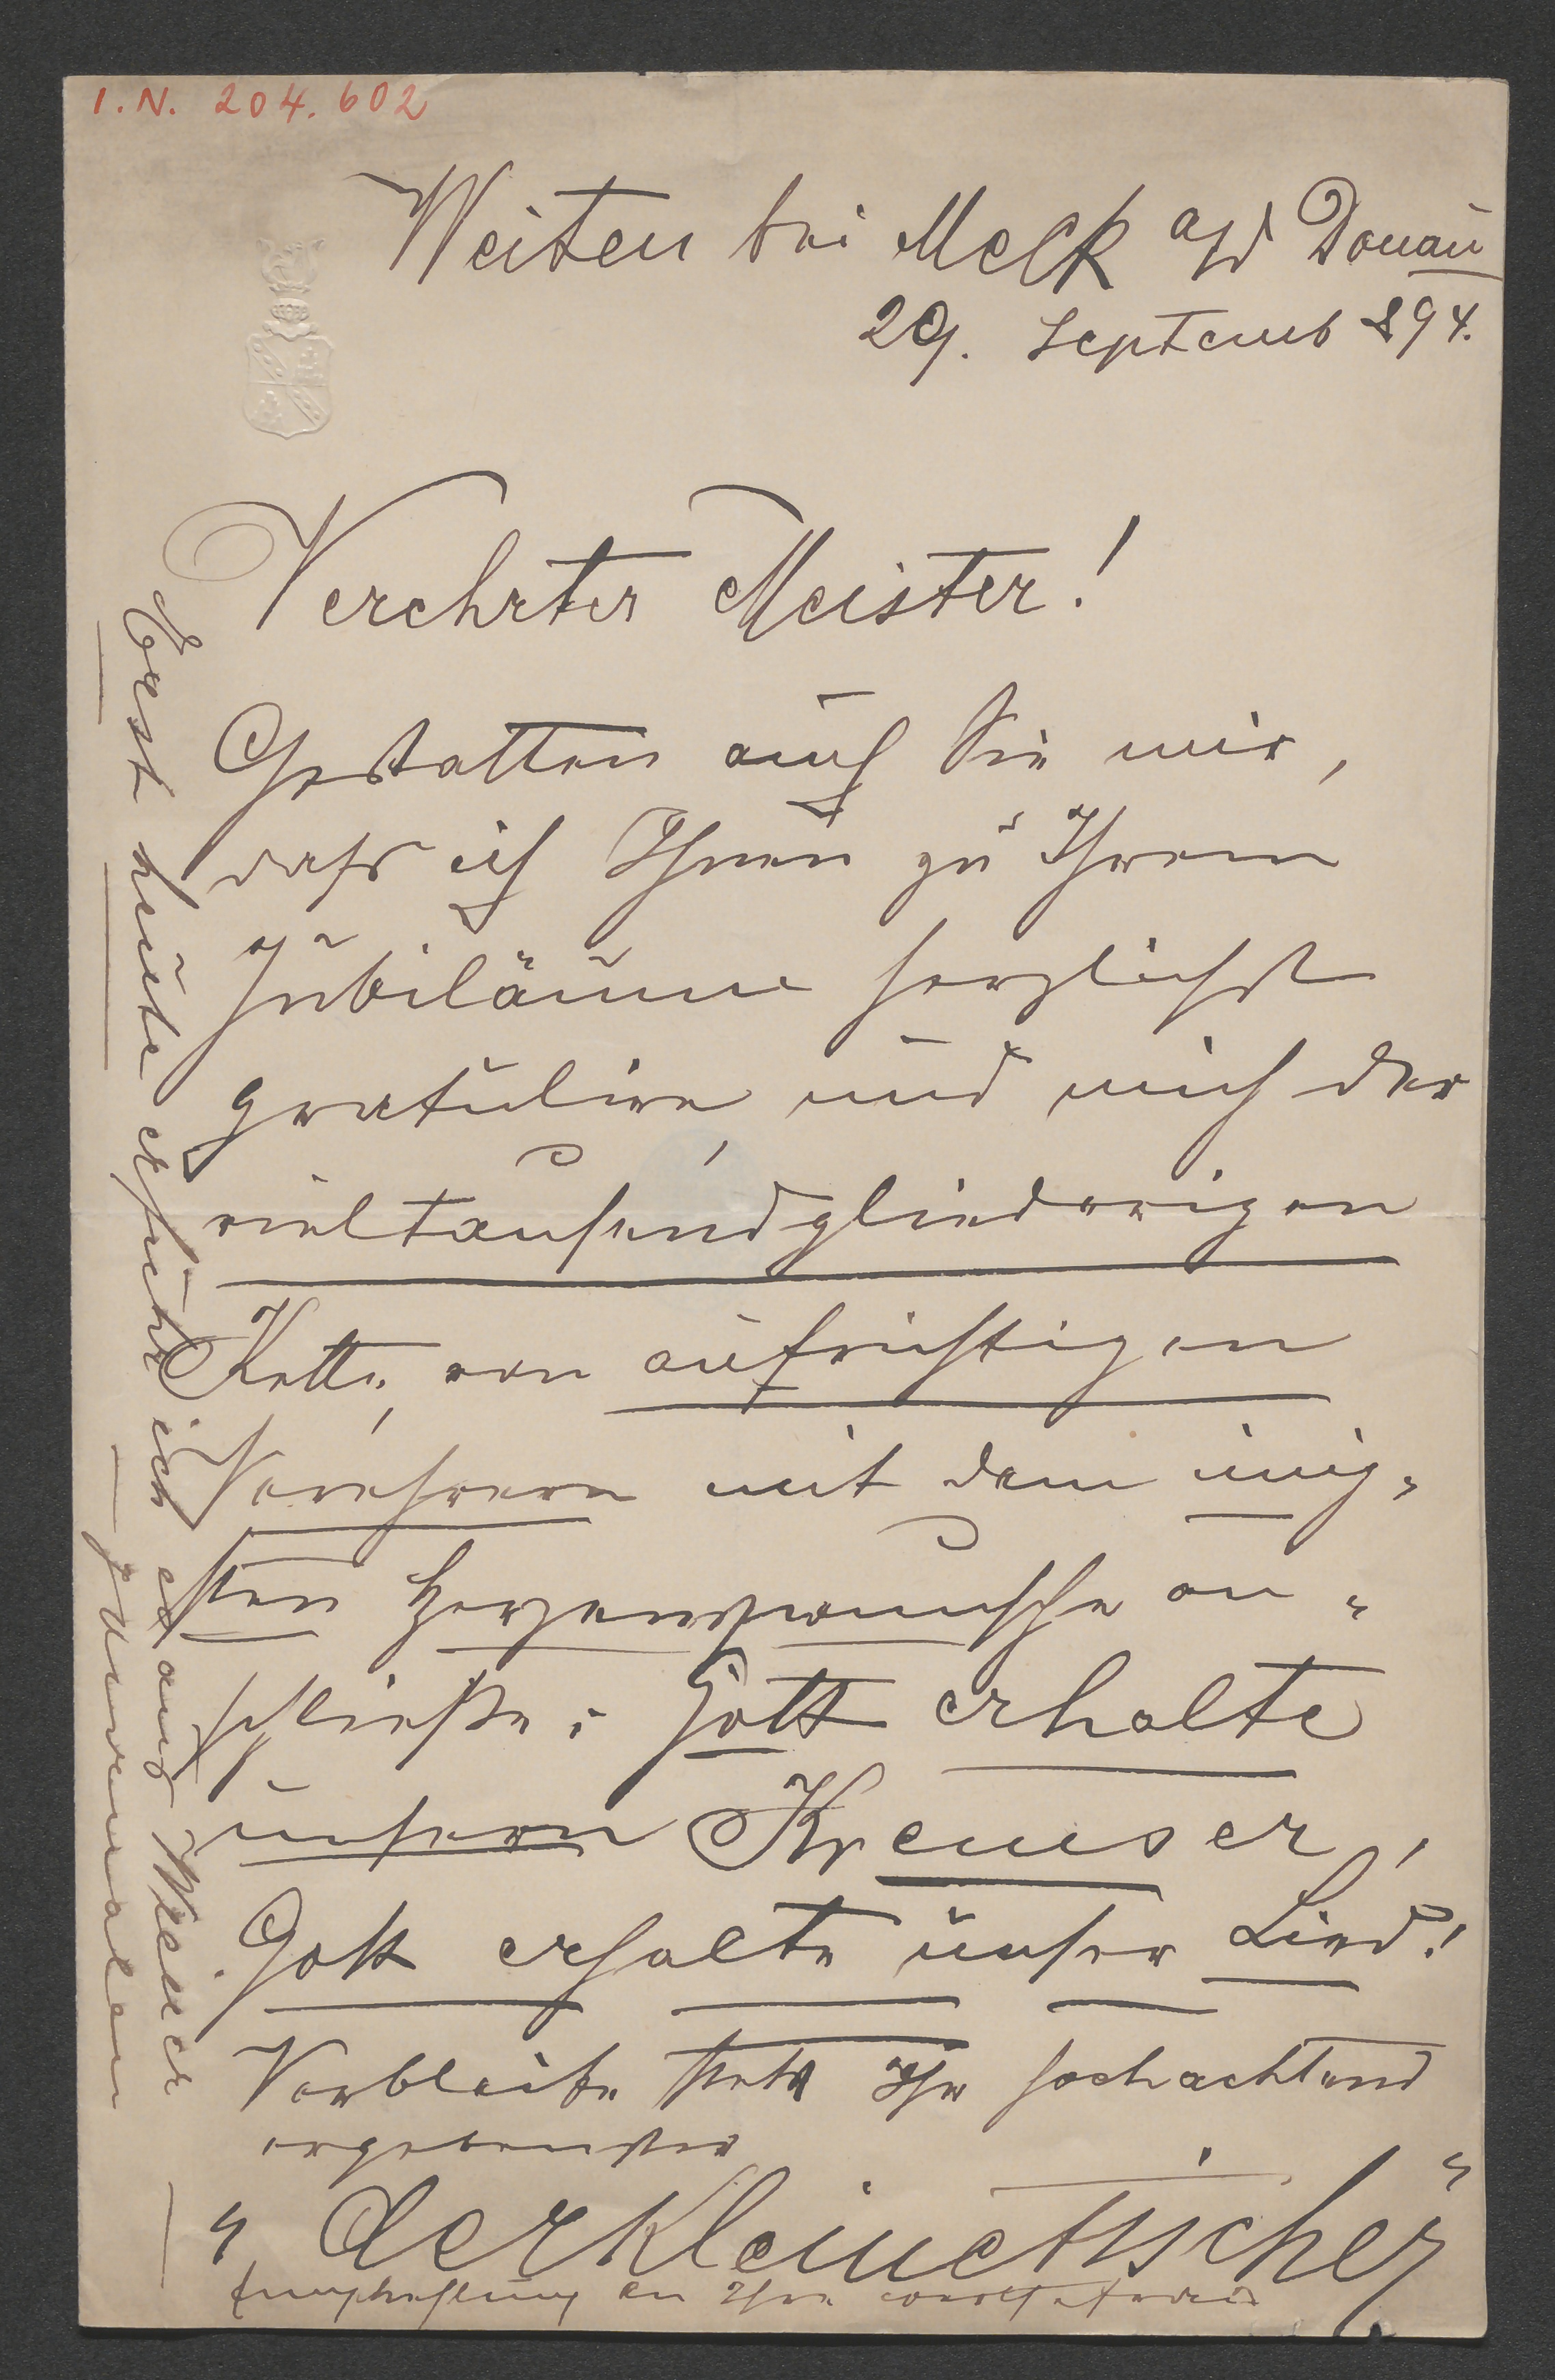 I.N. 204.602
Weiten bei Melk a/d Donau
29. Septemb 894.
Verehrter Meister!
Gestatten auch Sie mir,
dass ich Ihnen zu Ihrem
Jubiläum herzlichst
gratulire, und mich der
vieltausendgliedrigen
Kette, von aufrichtigen
Verehrern mit dem innig-
sten Herzenswunsche an-
schließe: Gott erhalte
unsern Kremser,
Gott erhalte unser Lied!
Verbleibe stets Ihr hochachtend
ergebenster
"der Kleinetischer"
Empfehlung an Ihre
Erst heute erfuhr ich es aus Wiener
Journalen